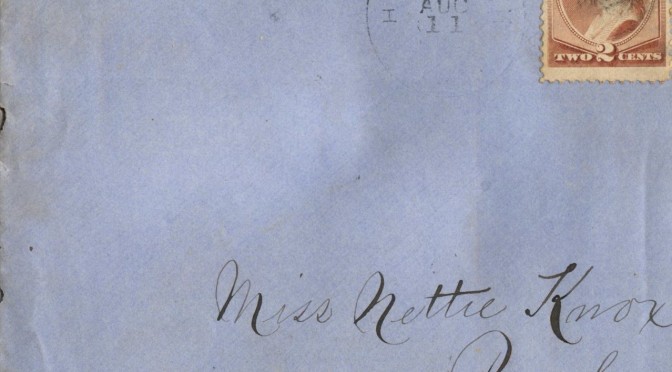 AUG
I 11
TWO 2 CENTS
Miss Nettie Knox